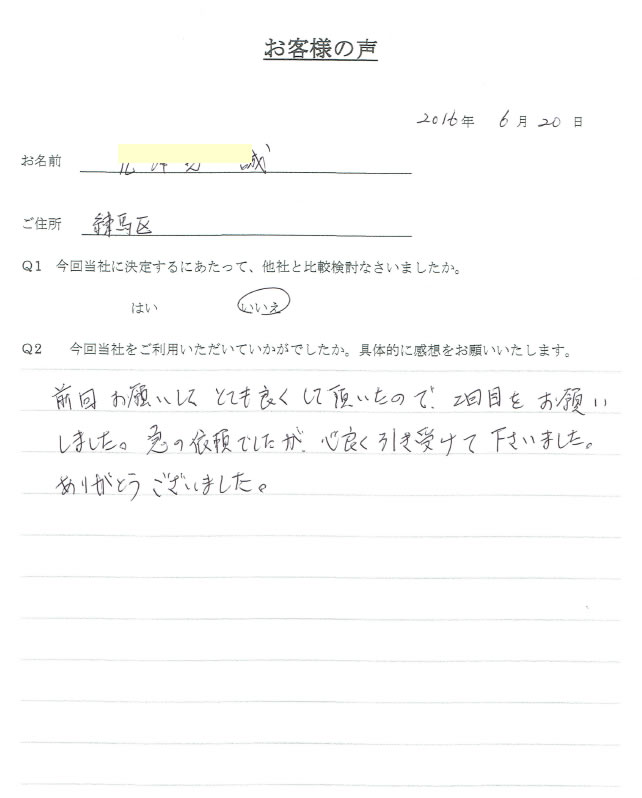 お客様の声
2016年 6月20日
お名前 誠
ご住所 練馬区
Q1 今回当社に決定するにあたって、他社と比較検討なさいましたか。
はい いいえ
Q2 今回当社をご利用いただいていかがでしたか。具体的に感想をお願いいたします。
前回お願いしてとても良くして頂いたので、2回目をお願い
しました。急の依頼でしたが、心良く引き受けて下さいました。
ありがとうございました。